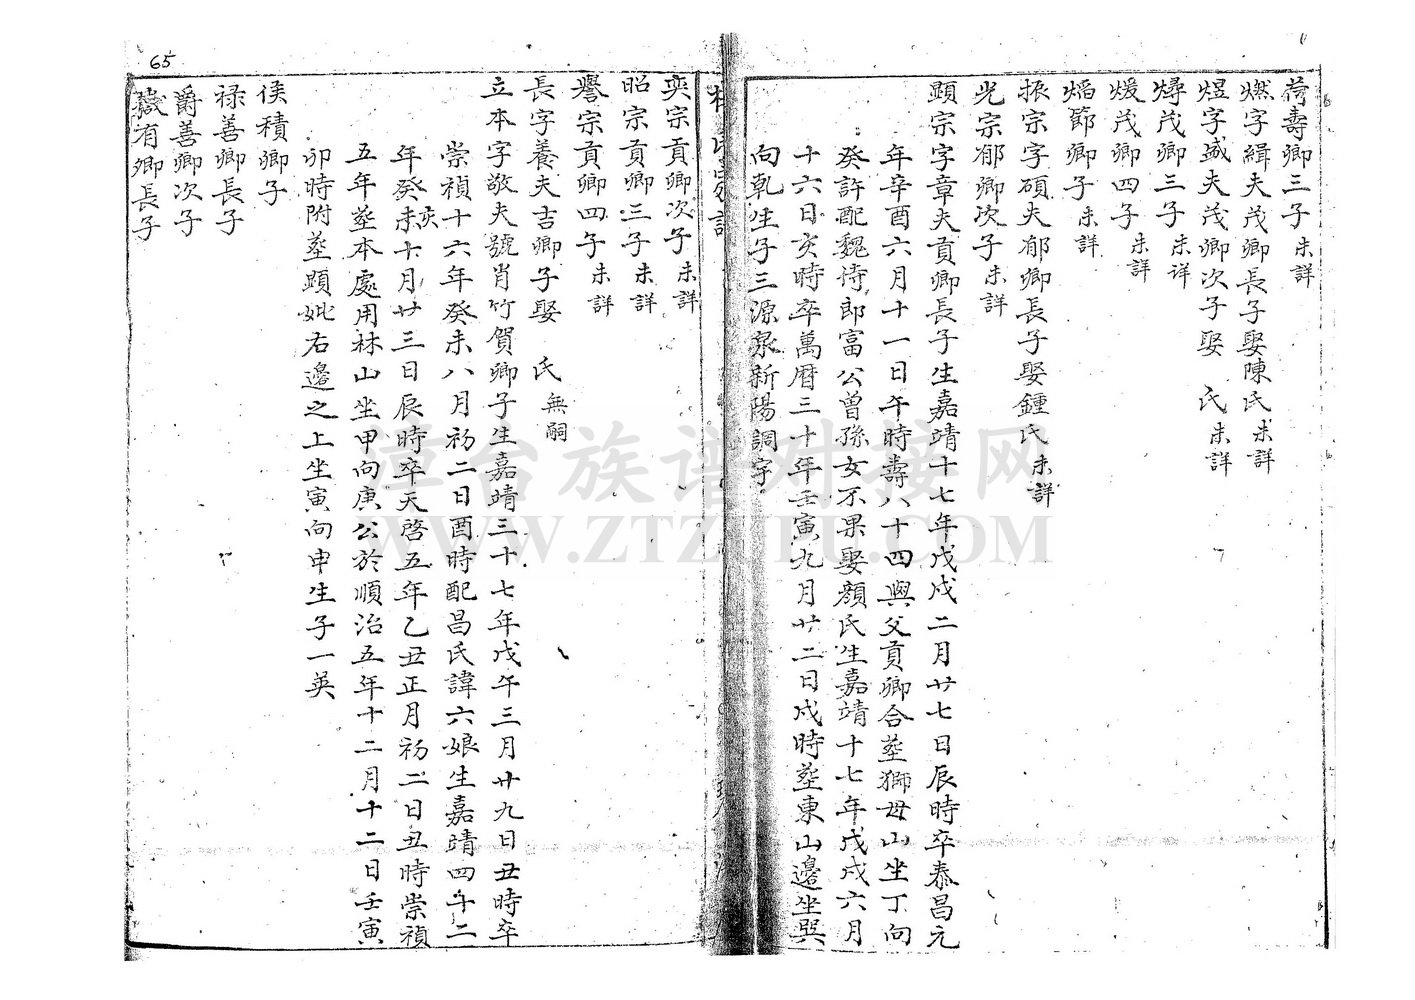 荷壽卿三子未詳
燃字緝夫茂卿長子娶陳氏未詳
煜字盛夫茂卿次子娶　氏未詳
燖茂卿三子未详
煖茂卿四子未詳
熖節卿子未詳
振宗字碩夫郁卿長子娶鍾氏未詳
光宗郁卿次子未詳
顕宗字章夫貢卿長子生嘉靖十七年戊戌二月廿七日辰時卒泰昌元
年辛酉六月十一日午時壽八十四與父貢卿合塟獅母山坐丁向
癸許配魏侍郎富公曽孫女不果娶顔氏生嘉靖十七年戊戌六月
十六日亥時卒萬曆三十年壬寅九月廿二日戌時塟東山邊坐巽
向乾生子三源泉新陽調字
奕宗貢卿次子未詳
昭宗貢卿三子未詳
譽宗貢卿四子未詳
長字養夫吉卿子娶　氏無嗣
立本字敬夫號肖竹賀卿子生嘉靖三十七年戊午三月廿九日丑時卒
崇禎十六年癸未八月初二日酉時配昌氏諱六娘生嘉靖四十二
年癸亥十月廿三日辰時卒天啓五年乙丑正月初二日丑時崇禎
五年塟本處用林山坐甲向庚公於順治五年十二月十二日壬寅
卯時附塟顕妣右邊之上坐寅向申生子一英
侯積卿子
禄善卿長子
爵善卿次子
嶽有卿長子
65
漳台族谱对接网
WWW.ZTZUPU.COM